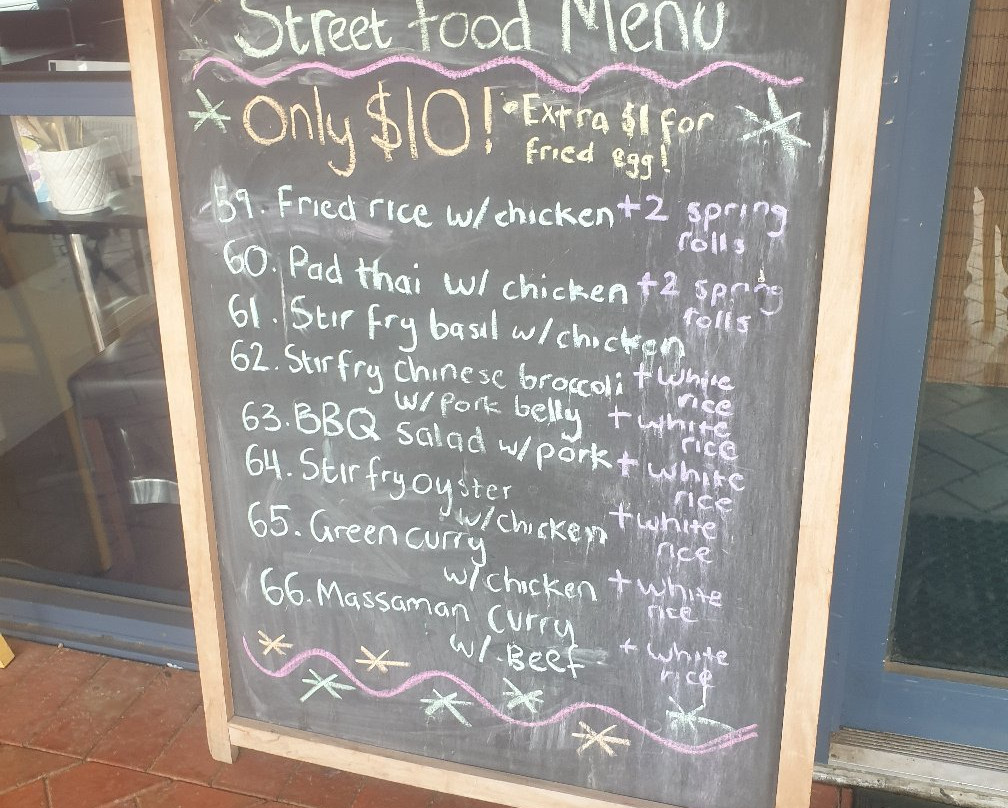 Street food Menu
Only $10! •Extra $1 for
fried egg!
59. Fried rice w/ chicken +2 spring
rolls
60. Pad thai w/ chicken +2 spring
rolls
61. Stir fry basil w/chicken
+ white
rice
62. Stir fry Chinese broccoli
w/ Pork belly + white
rice
63. BBQ Salad w/ pork + white
rice
64. Stir fry oyster
w/chicken + white
rice
65. Green curry
w/ chicken + white
rice
66. Massaman Curry
w/. Beef + white
rice